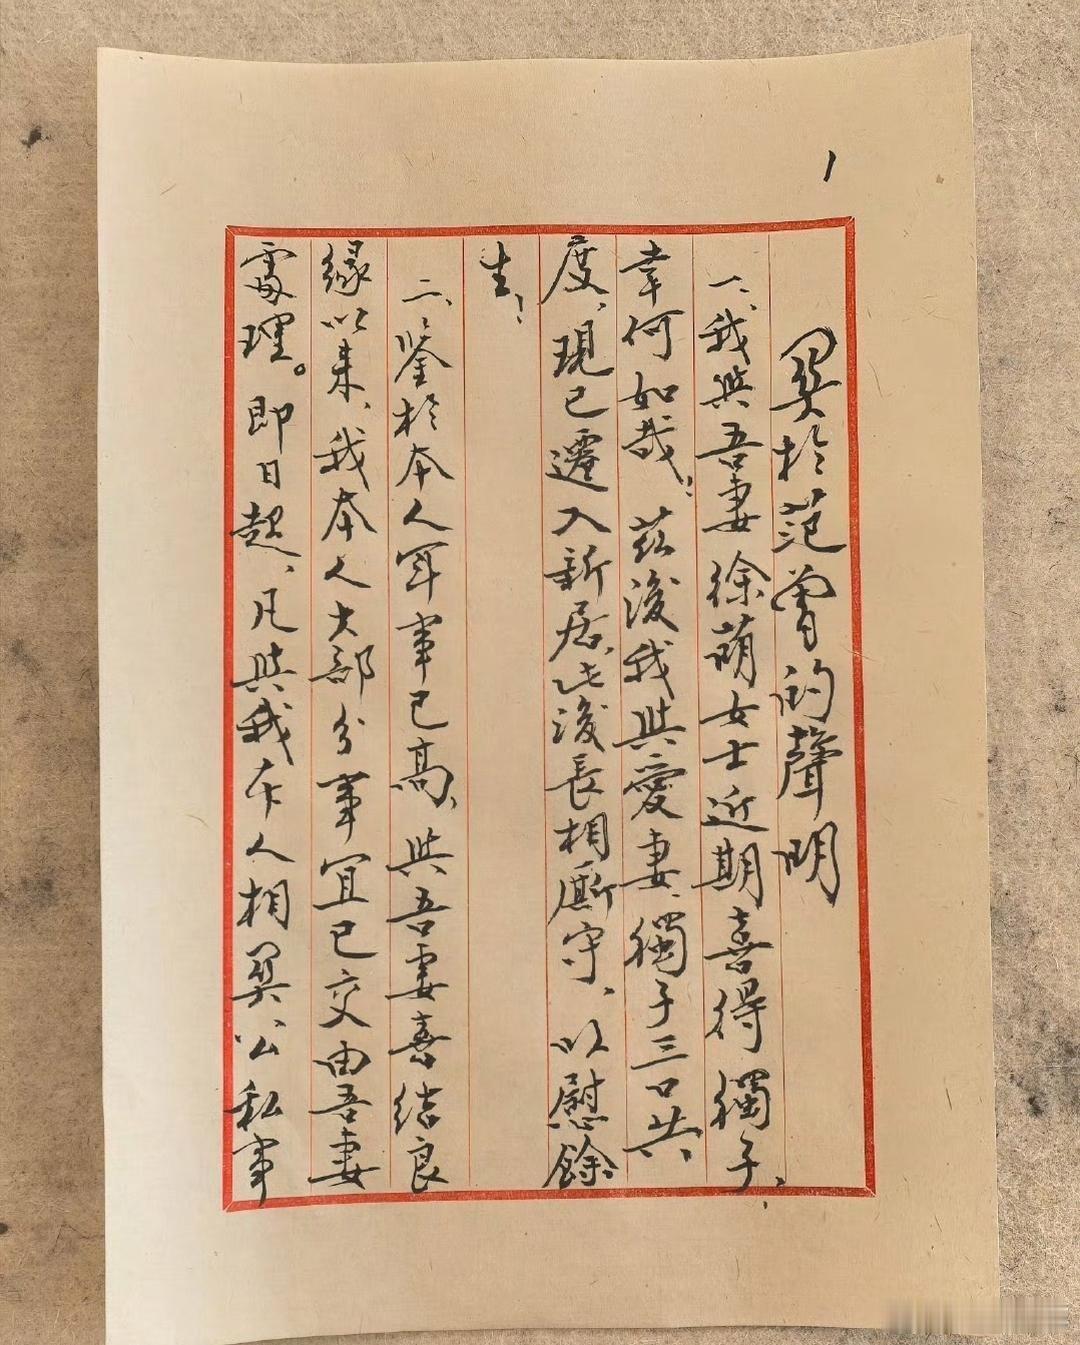 1
関於范曾的聲明
一、我與吾妻徐萌女士近期喜得獨子，
幸何如哉！茲後我與愛妻、獨子三口共
度，現已遷入新居，此後長相廝守，以慰餘
生！
二、鑒於本人年事已高，與吾妻喜結良
緣以来，我本人大部分事宜已交由吾妻
處理。即日起，凡與我本人相関公私事